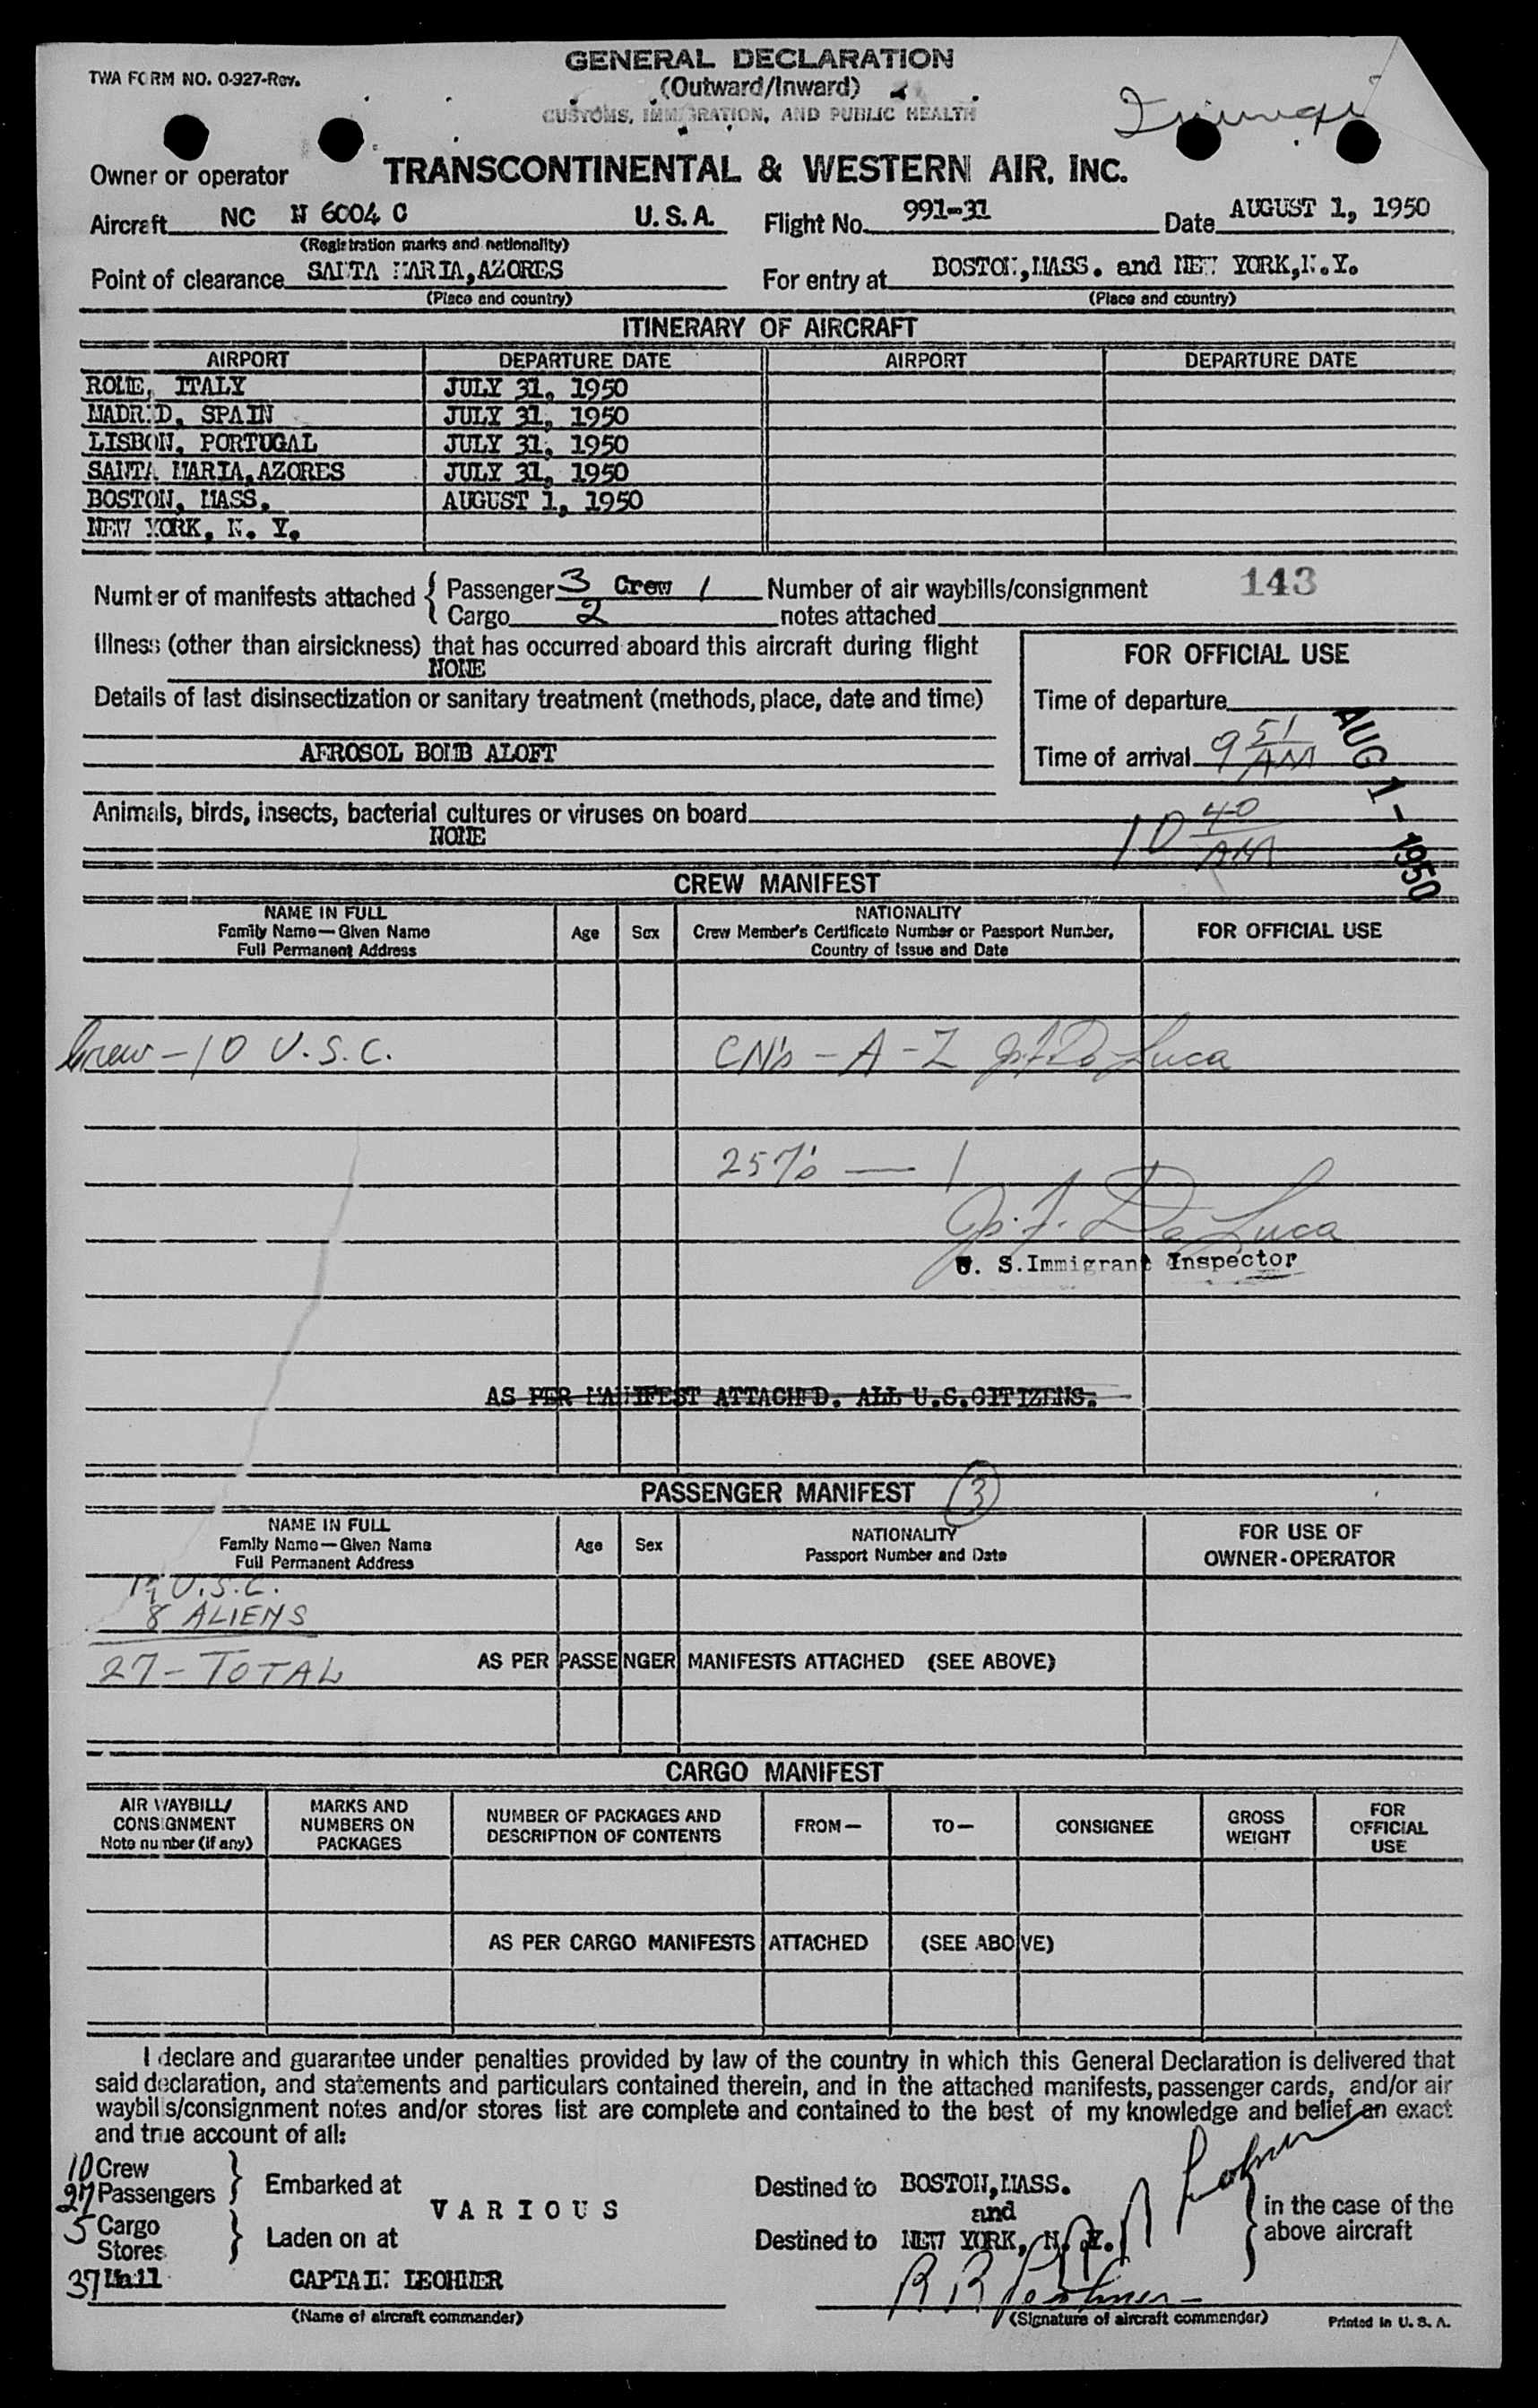 TWA FORM NO. 0-927-Rev.
GENERAL DECLARATION
(Outward/Inward)
CUSTOMS, IMMIGRATION, AND PUBLIC HEALTH
Owner or operator TRANSCONTINENTAL & WESTERN AIR, INC.
Aircraft NC N 6004 C U.S.A. Flight No. 991-31 Date AUGUST 1, 1950
(Registration marks and nationality)
Point of clearance SANTA MARIA, AZORES For entry at BOSTON, MASS. and NEW YORK, N.Y.
(Place and country) (Place and country)
ITINERARY OF AIRCRAFT
AIRPORT DEPARTURE DATE AIRPORT DEPARTURE DATE
ROME, ITALY JULY 31, 1950
MADRID, SPAIN JULY 31, 1950
LISBON, PORTUGAL JULY 31, 1950
SANTA MARIA, AZORES JULY 31, 1950
BOSTON, MASS. AUGUST 1, 1950
NEW YORK, N. Y.
Number of manifests attached { Passenger 3 Crew 1 Number of air waybills/consignment 143
Cargo 2 notes attached
Illness (other than airsickness) that has occurred aboard this aircraft during flight
NONE
FOR OFFICIAL USE
Details of last disinsectization or sanitary treatment (methods, place, date and time)
Time of departure
AEROSOL BOMB ALOFT
Time of arrival 9 51 AM
AUG 1 - 1950
Animals, birds, insects, bacterial cultures or viruses on board
NONE
10 40 AM
CREW MANIFEST
NAME IN FULL
Family Name—Given Name
Full Permanent Address
Age
Sex
NATIONALITY
Crew Member's Certificate Number or Passport Number,
Country of Issue and Date
FOR OFFICIAL USE
Crew - 10 U.S.C. CN's - A - Z J. F. De Luca
257's — 1
J. F. De Luca
U. S. Immigrant Inspector
AS PER MANIFEST ATTACHED. ALL U.S.CITIZENS.
PASSENGER MANIFEST 3
NAME IN FULL
Family Name—Given Name
Full Permanent Address
Age
Sex
NATIONALITY
Passport Number and Date
FOR USE OF
OWNER-OPERATOR
19 U.S.C.
8 ALIENS
27 - TOTAL
AS PER PASSENGER MANIFESTS ATTACHED (SEE ABOVE)
CARGO MANIFEST
AIR WAYBILL/
CONSIGNMENT
Note number (if any)
MARKS AND
NUMBERS ON
PACKAGES
NUMBER OF PACKAGES AND
DESCRIPTION OF CONTENTS
FROM—
TO—
CONSIGNEE
GROSS
WEIGHT
FOR
OFFICIAL
USE
AS PER CARGO MANIFESTS ATTACHED (SEE ABOVE)
I declare and guarantee under penalties provided by law of the country in which this General Declaration is delivered that
said declaration, and statements and particulars contained therein, and in the attached manifests, passenger cards, and/or air
waybills/consignment notes and/or stores list are complete and contained to the best of my knowledge and belief an exact
and true account of all:
10 Crew
27 Passengers } Embarked at
VARIOUS
5 Cargo
Stores } Laden on at
37 Mail
Destined to BOSTON, MASS.
and
Destined to NEW YORK, N. Y.
} in the case of the
above aircraft
CAPTAIN LEOHNER
(Name of aircraft commander) (Signature of aircraft commander) Printed in U. S. A.